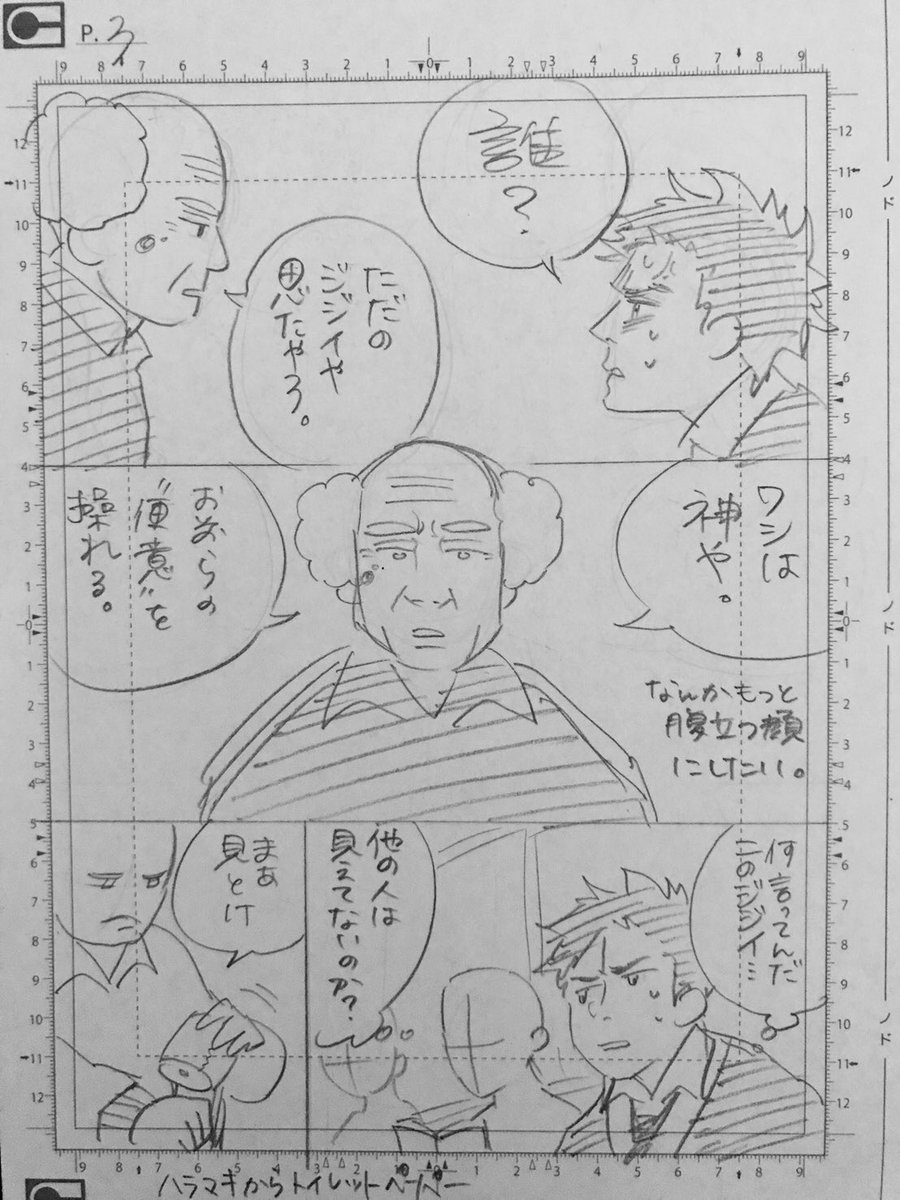 P.3
誰?
ただの
ジジイや
思たやろ。
ワシは
神や。
おまらの
"便意"を
操れる。
なんかもっと
腹立つ顔
にしたい。
何言ってんだ
このジジイ…
他の人は
見えてないのか?
まあ
見とけ
ハラマキからトイレットペーパー
ノド
ノド
ノド